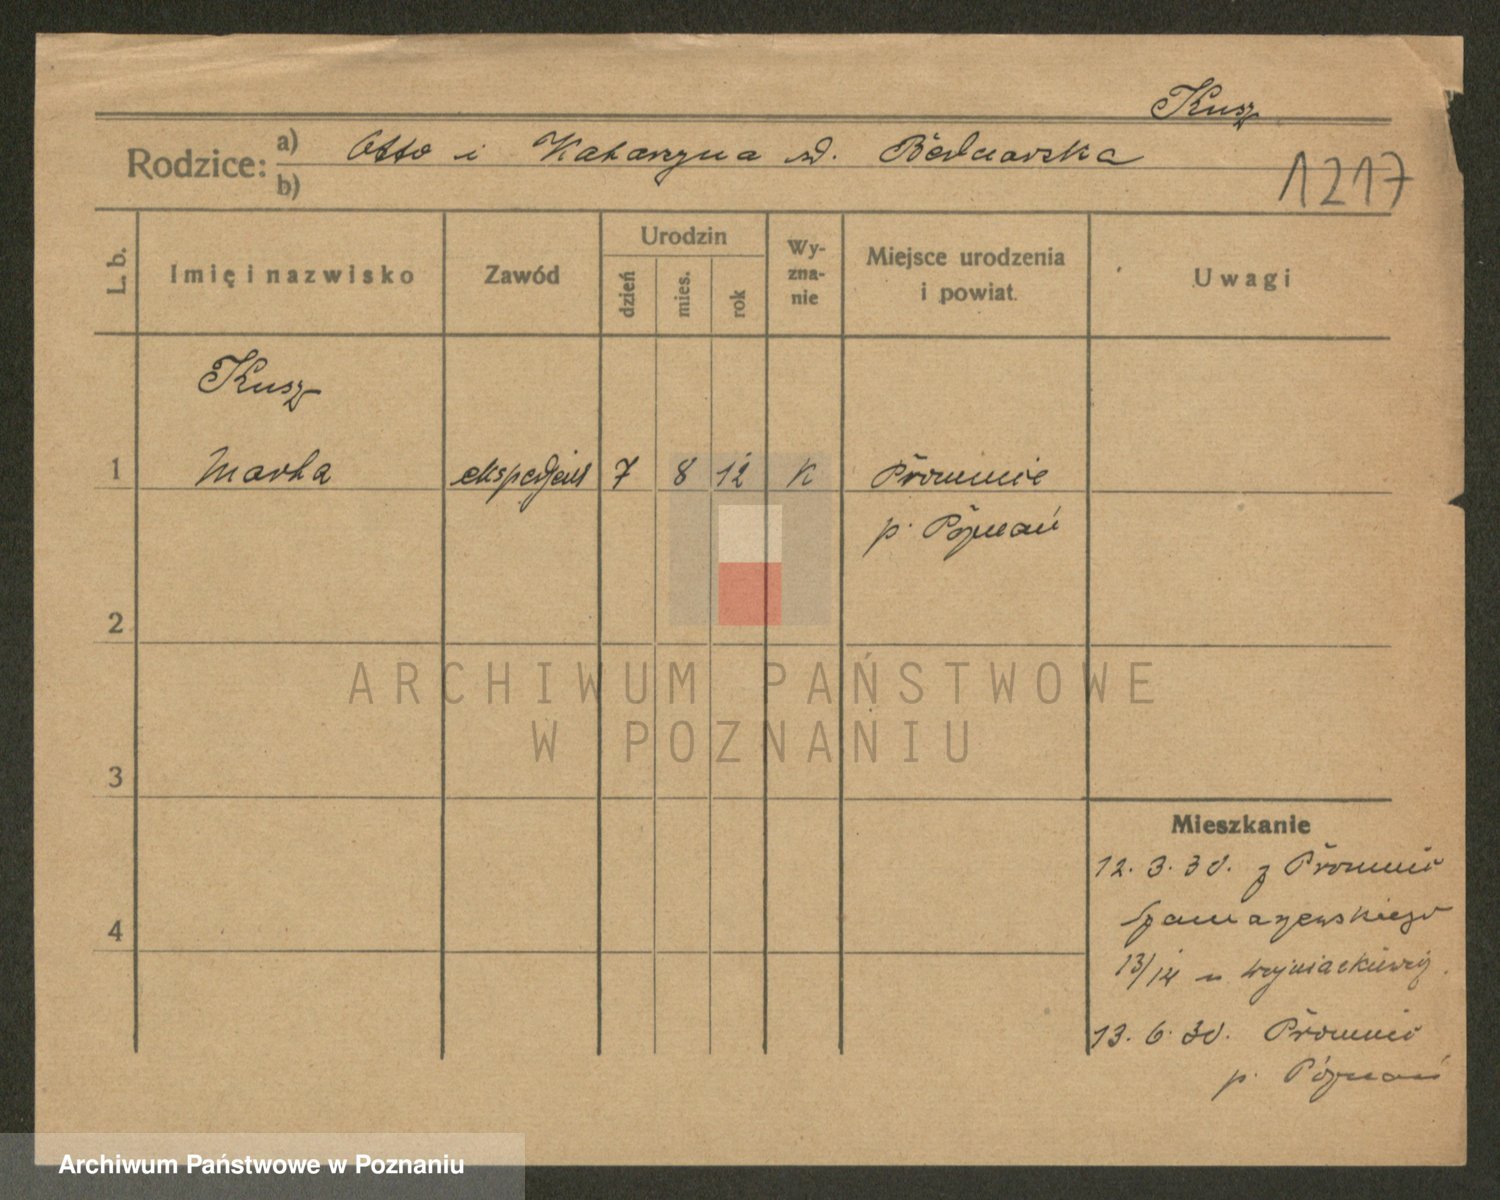 Kusz
Rodzice: a) Otto i Katarzyna zd. Bednarska
b)
1217
L. b.
Imię i nazwisko
Zawód
Urodzin
dzień
mies.
rok
Wy-
zna-
nie
Miejsce urodzenia
i powiat.
Uwagi
Kusz
1 Marta ekspedjent 7 8 12 K Promnie
p. Poznań
2
3
4
Mieszkanie
12. 3. 30. z Promnie
Szamarzewskiego
13/14 u
13. 6. 30. Promnie
p. Poznań
ARCHIWUM PAŃSTWOWE
W POZNANIU
Archiwum Państwowe w Poznaniu